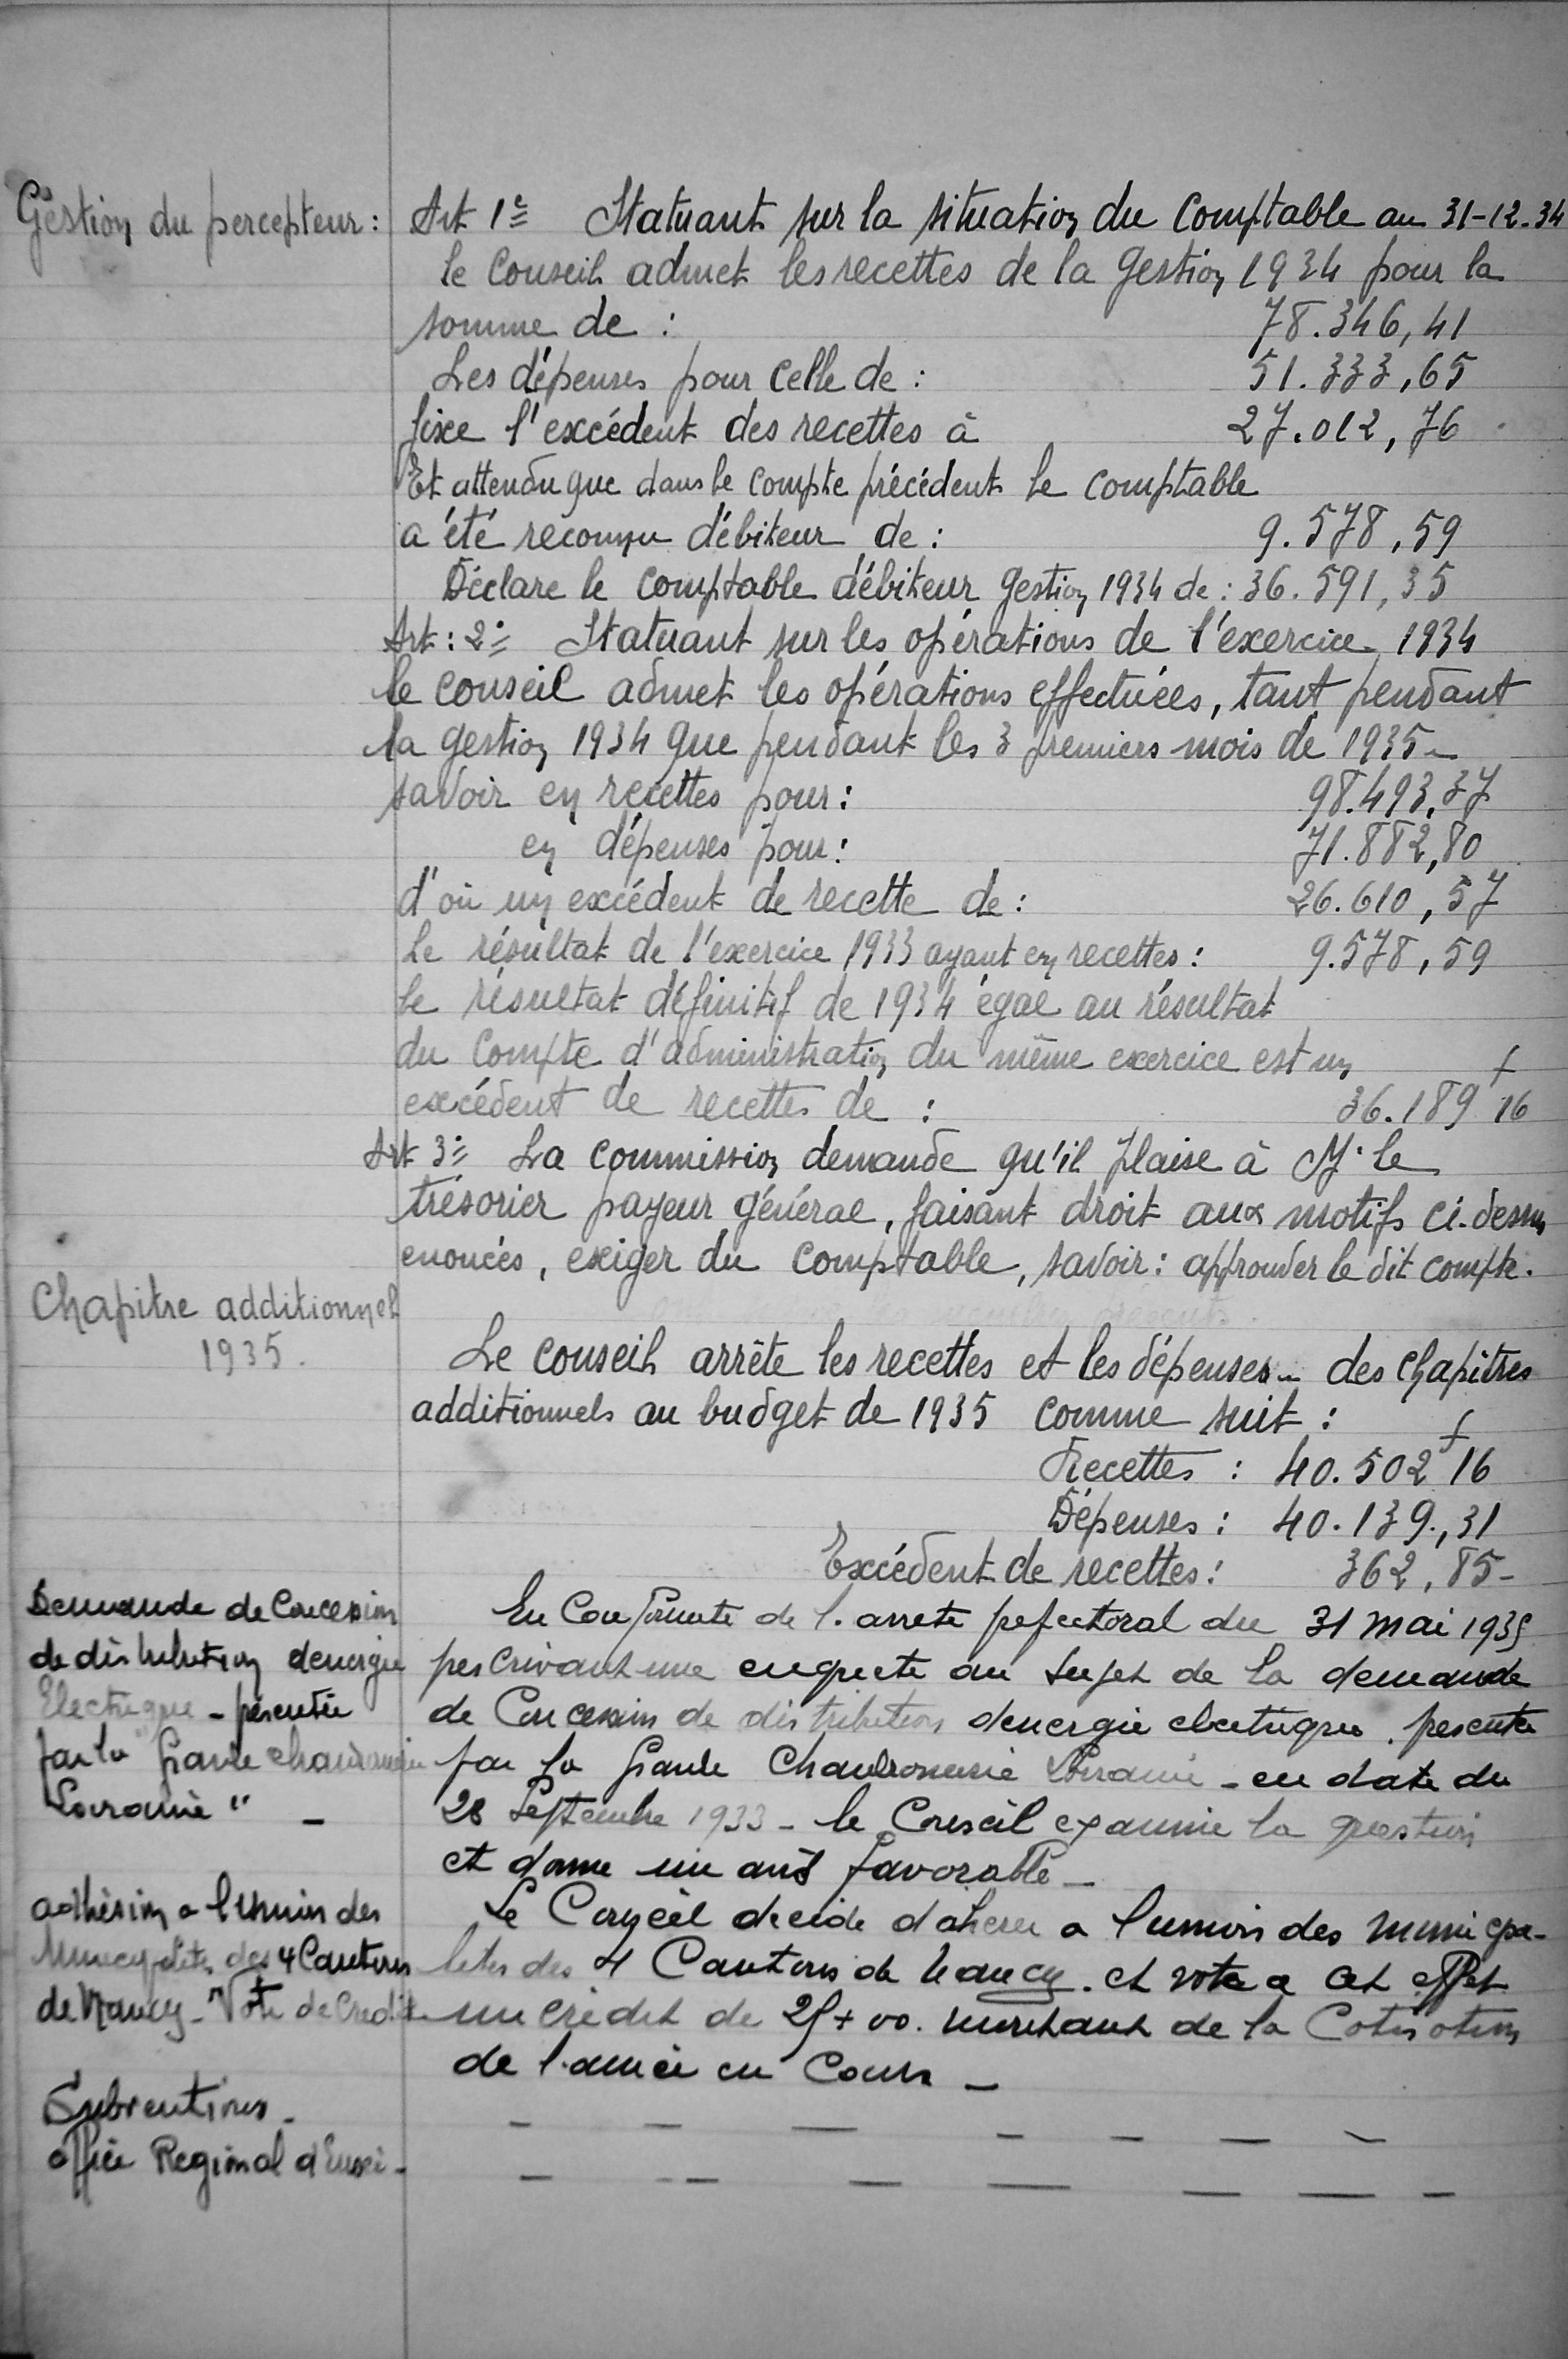 Gestion du percepteur :
Art 1e Statuant sur la situation du Comptable au 31-12-34
le Conseil admet les recettes de la gestion 1934 pour la
somme de : 78.346,41
Les dépenses pour celle de : 51.333,65
fixe l'excédent des recettes à 27.012,76
Et attendu que dans le compte précédent le comptable
a été reconnu débiteur de : 9.578,59
Déclare le comptable débiteur gestion 1934 de : 36.591,35
Art : 2° Statuant sur les opérations de l'exercice 1934
le conseil admet les opérations effectuées, tant pendant
la gestion 1934 que pendant les 3 premiers mois de 1935 -
savoir en recettes pour : 98.493,37
en dépenses pour : 71.882,80
d'où un excédent de recette de : 26.610,57
Le résultat de l'exercice 1933 ayant en recettes : 9.578,59
le résultat définitif de 1934 égal au résultat
du compte d'administration du même exercice est un
excédent de recettes de : 36.189f16
Art 3° La commission demande qu'il plaise à M. le
trésorier payeur général, faisant droit aux motifs ci-dessus
enoncés, exiger du comptable, savoir : approuver le dit compte.
Chapitre additionnel
1935.
Le conseil arrête les recettes et les dépenses - des chapitres
additionnels au budget de 1935 comme suit :
Recettes : 40.502f16
Dépenses : 40.139,31
Excédent de recettes : 362,85-
Demande de Concession
de distribution denergie
Electrique - présentée
par la "Grande chaudronnerie
Lorraine" -
En Conformite de l'arrete prefectoral du 31 mai 1935
prescrivant une enquete au sujet de la demande
de Concession de distribution denergie electrique presentee
par la Grande Chaudronnerie Lorraine - en date du
28 Septembre 1933 - le Conseil examine la question
et donne un avis favorable -
adhésion a l'Union des
Municipalites des 4 Cantons
de Nancy - Vote de Credit
Le Conseil decide d'adherer a l'union des municipa-
lites des 4 Cantons de Nancy. et vote a cet effet
un crédit de montant de la Cotisation
de l'année en Cours -
Subventions -
office Regional